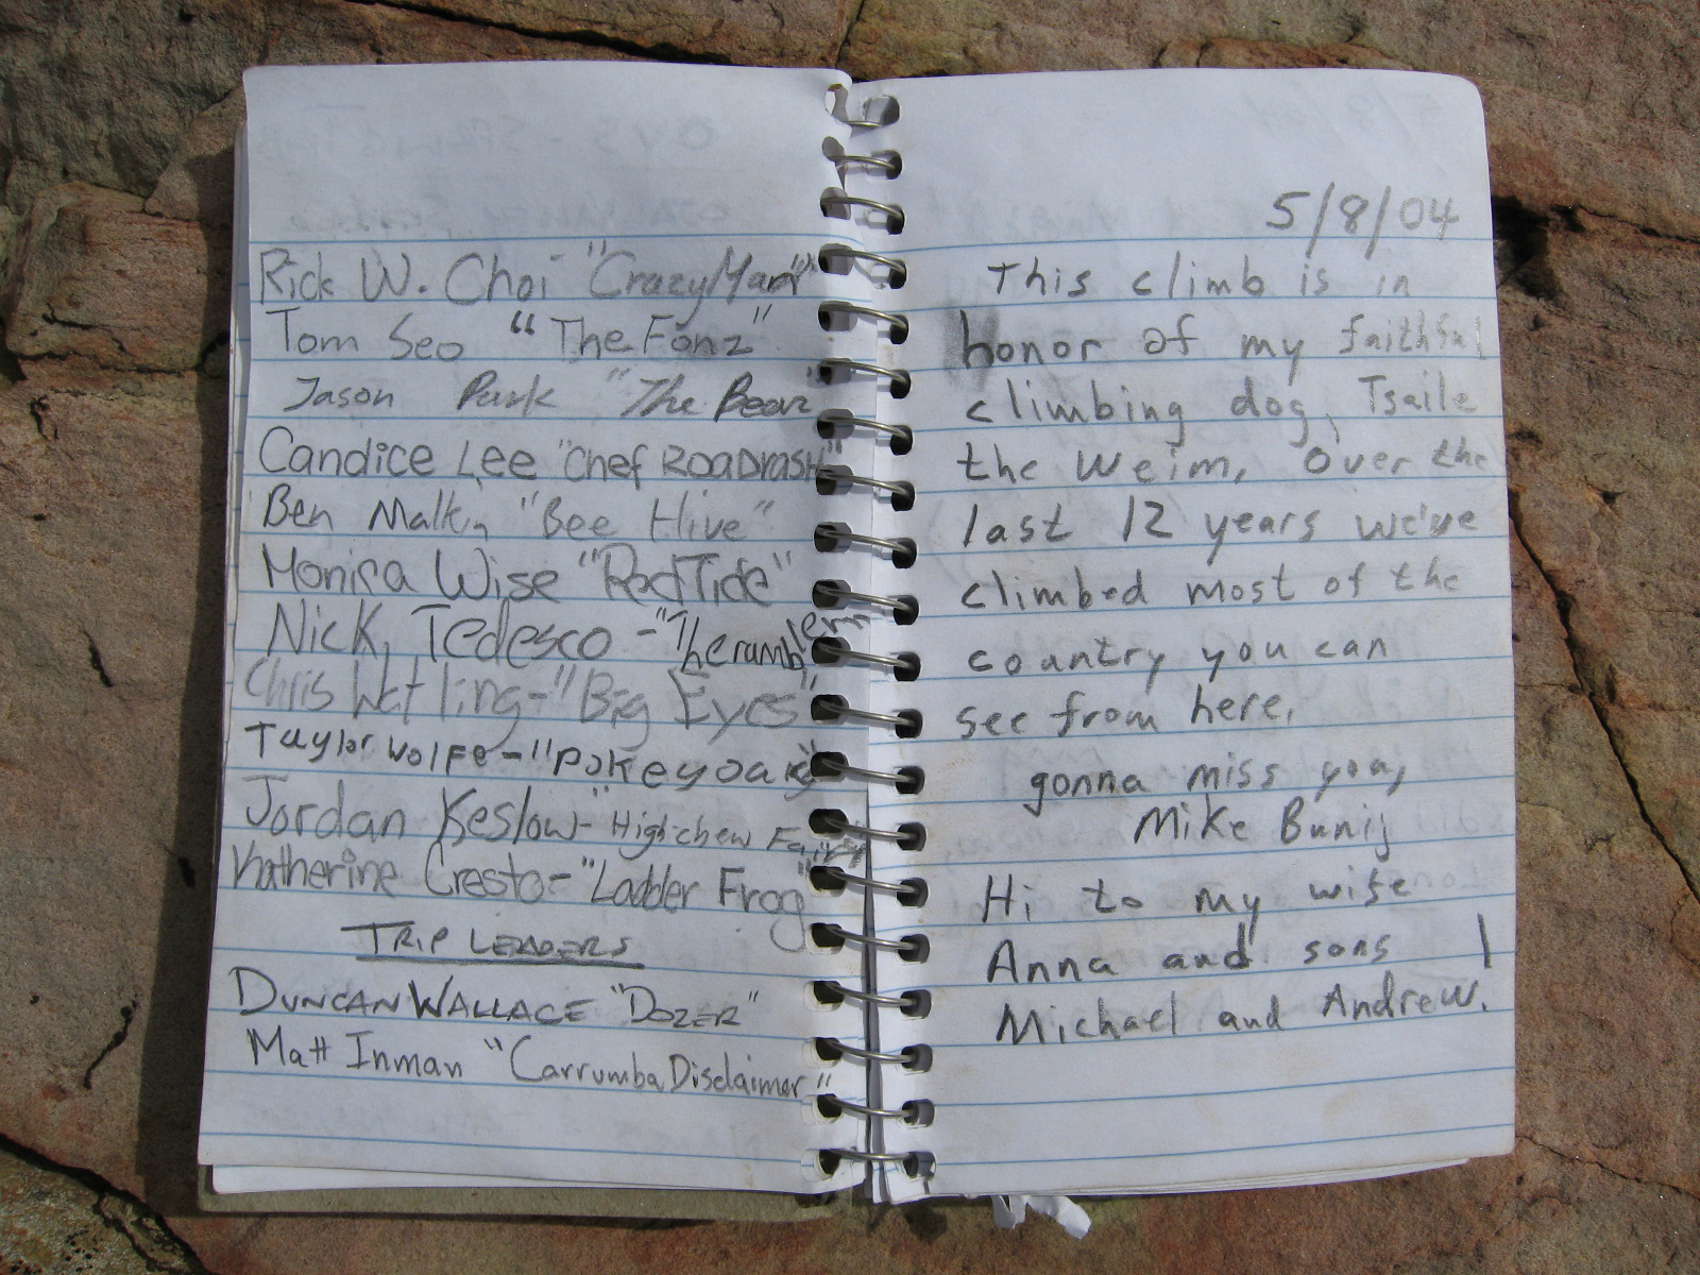 Rick W. Choi "CrazyMan"
Tom Seo "The Fonz"
Jason Park "The Bear"
Candice Lee "Chef ROADRASH"
Ben Malkin "Bee Hive"
Monica Wise "Red Tide"
Nick Tedesco - "The rambler"
Chris Watling - "Big Eyes"
Taylor Wolfe - "Pokeyoaky"
Jordan Keslow - "High-chew Fairy"
Katherine Cresto - "Ladder Frog"
TRIP LEADERS
DUNCAN WALLACE "DOZER"
Matt Inman "Carrumba Disclaimer"
5/8/04
This climb is in
honor of my faithful
climbing dog, Tsaile
the Weim. Over the
last 12 years we've
climbed most of the
country you can
see from here.
gonna miss you,
Mike Bunij
Hi to my wife
Anna and sons
Michael and Andrew.